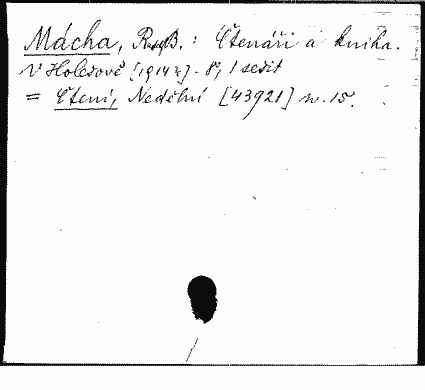 Mácha, R. B.: Čtenáři a kniha.
V Holešově [1914]. 8°, 1 sešit
= Čtení, Nedělní [43921] n. 15.